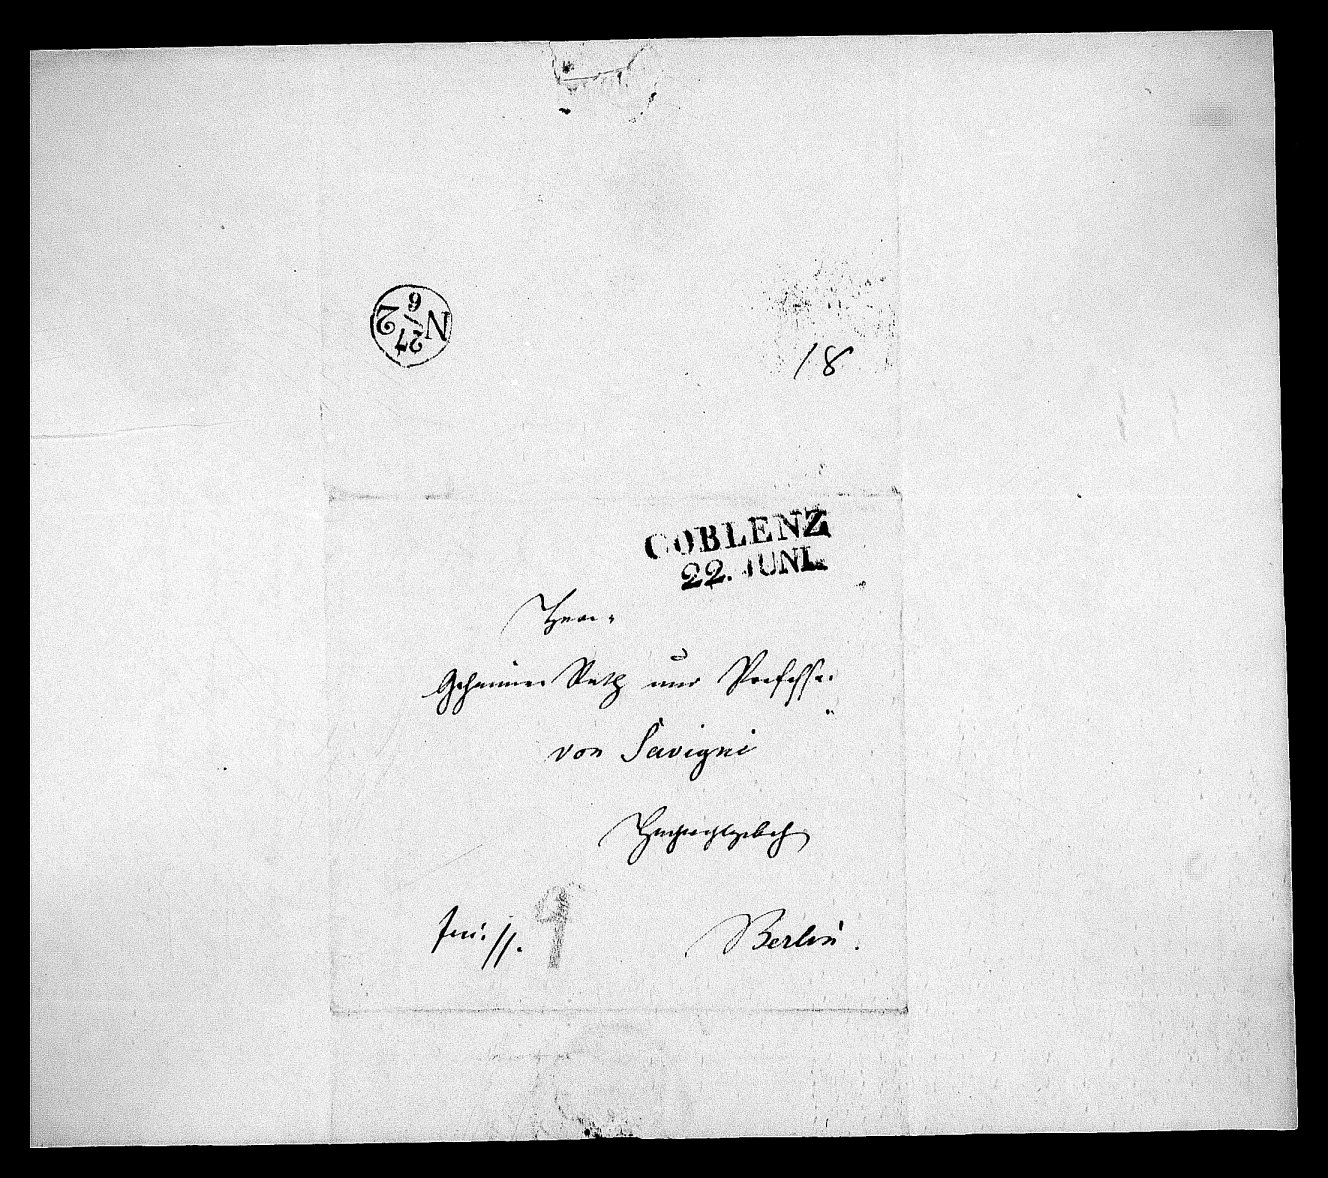 N 2
27/6
18
COBLENZ
22. JUNI.
Herrn
Geheimer Rath und Professor
von Savigni
Hochwohlgeb
frei.
9
Berlin.